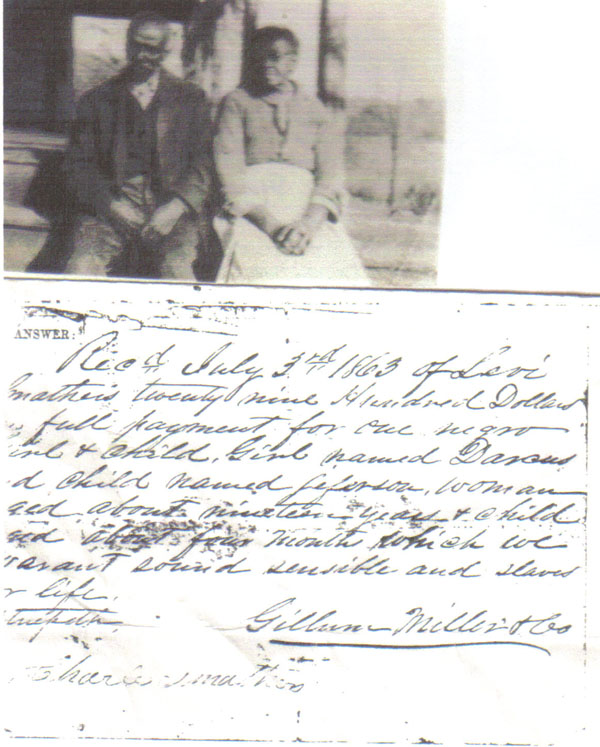 ANSWER:
Recd July 3rd 1863 of Levi
Smathers twenty nine Hundred Dollars
full payment for one negro
Girl & child. Girl named Darcus
d child named Jeferson. Woman
aged about nineteen years & child
aged about four months which we
warant sound sensible and slaves
r life.
Gillum Miller & Co
Charle Smathers